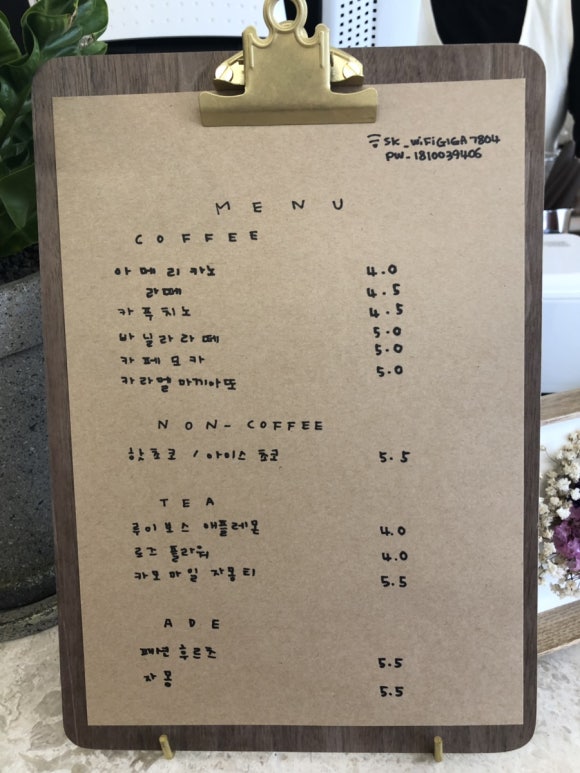 SK_WiFiGIGA7804
PW-1810039406
MENU
COFFEE
아메리카노 4.0
라떼 4.5
카푸치노 4.5
바닐라라떼 5.0
카페모카 5.0
카라멜마끼아또 5.0
NON-COFFEE
핫초코 / 아이스초코 5.5
TEA
루이보스 애플레몬 4.0
로즈 플라워 4.0
카모마일 자몽티 5.5
ADE
패션후르츠 5.5
자몽 5.5